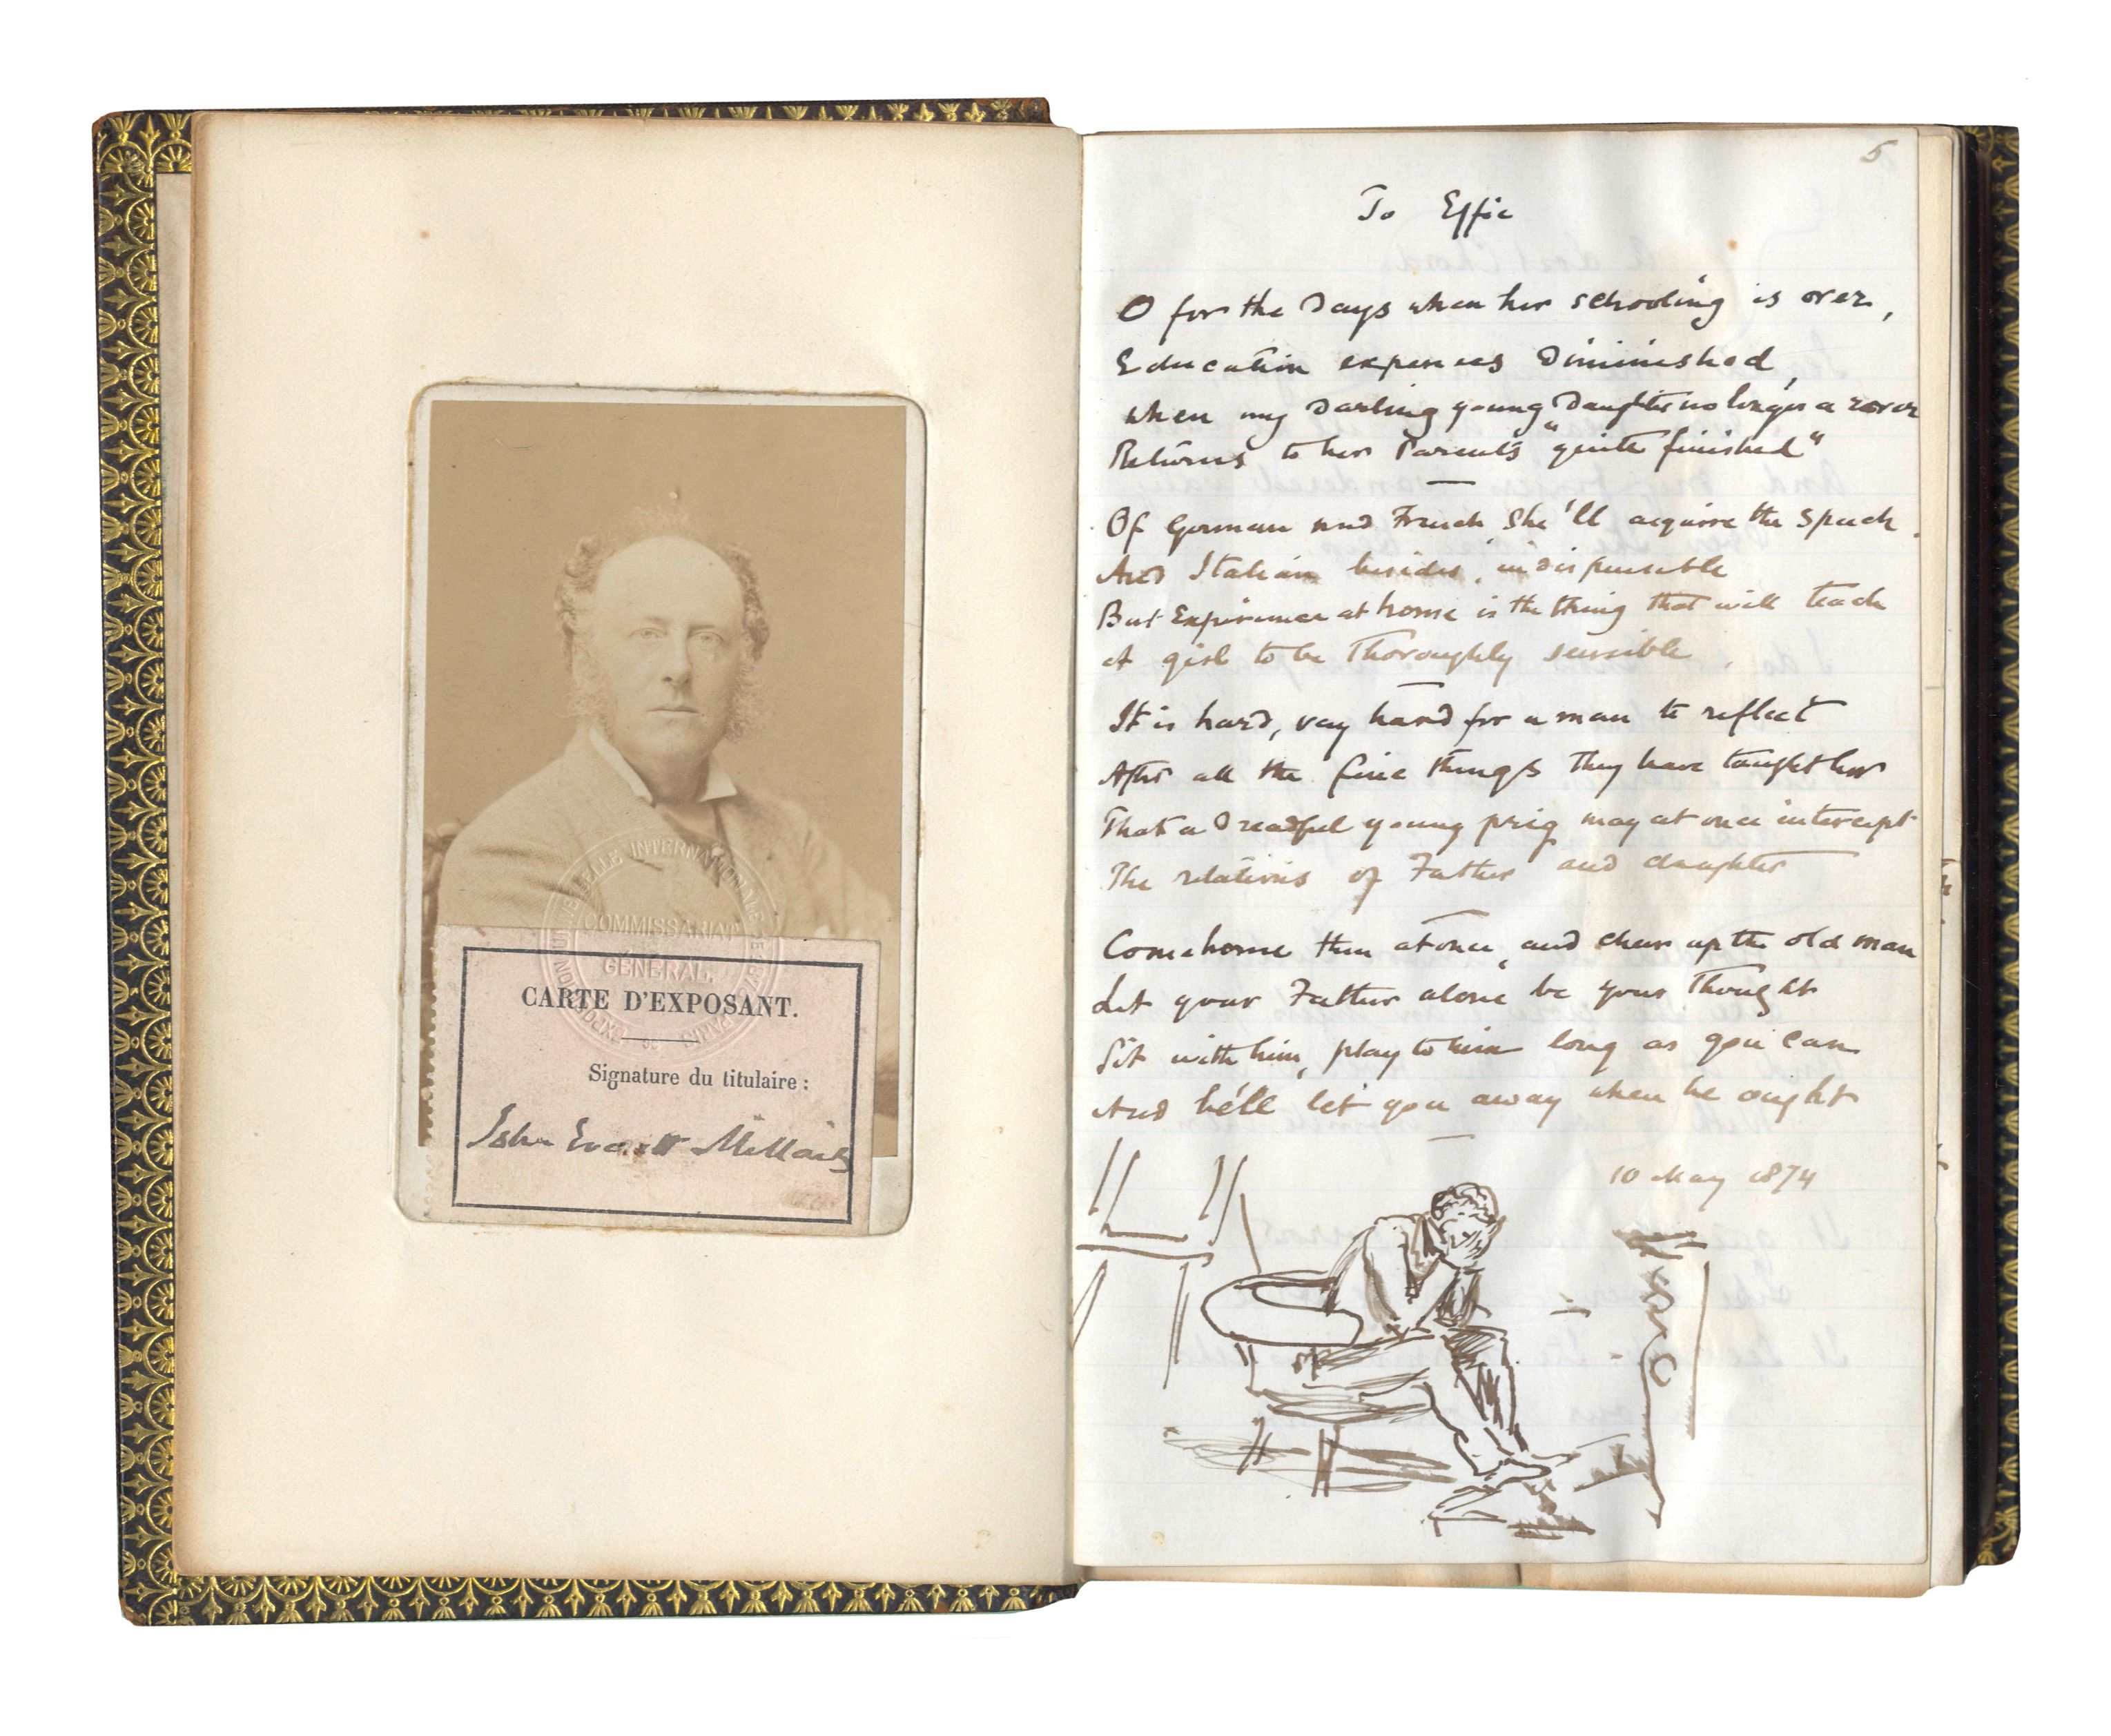 EXPOSITION UNIVERSELLE INTERNATIONALE PARIS
COMMISSARIAT
GÉNÉRAL.
CARTE D'EXPOSANT.
Signature du titulaire :
John Everett Millais
5
To Effie
O for the Days when her schooling is over,
Education expenses Diminished,
When my Darling young Daughter no longer a rover
Returns to her Parents "quite finished"
Of German and French she'll acquire the speech
And Italian besides, indispensible
But Experience at home is the thing that will teach
A girl to be Thoroughly sensible.
It is hard, very hard for a man to reflect
After all the fine things They have taught her
That a Dreadful young prig may at once intercept
The relations of Father and daughter
Come home then at once, and cheer up the old man
Let your Father alone be your Thought
Sit with him, play to him long as you can
And he'll let you away when he ought
10 May 1874